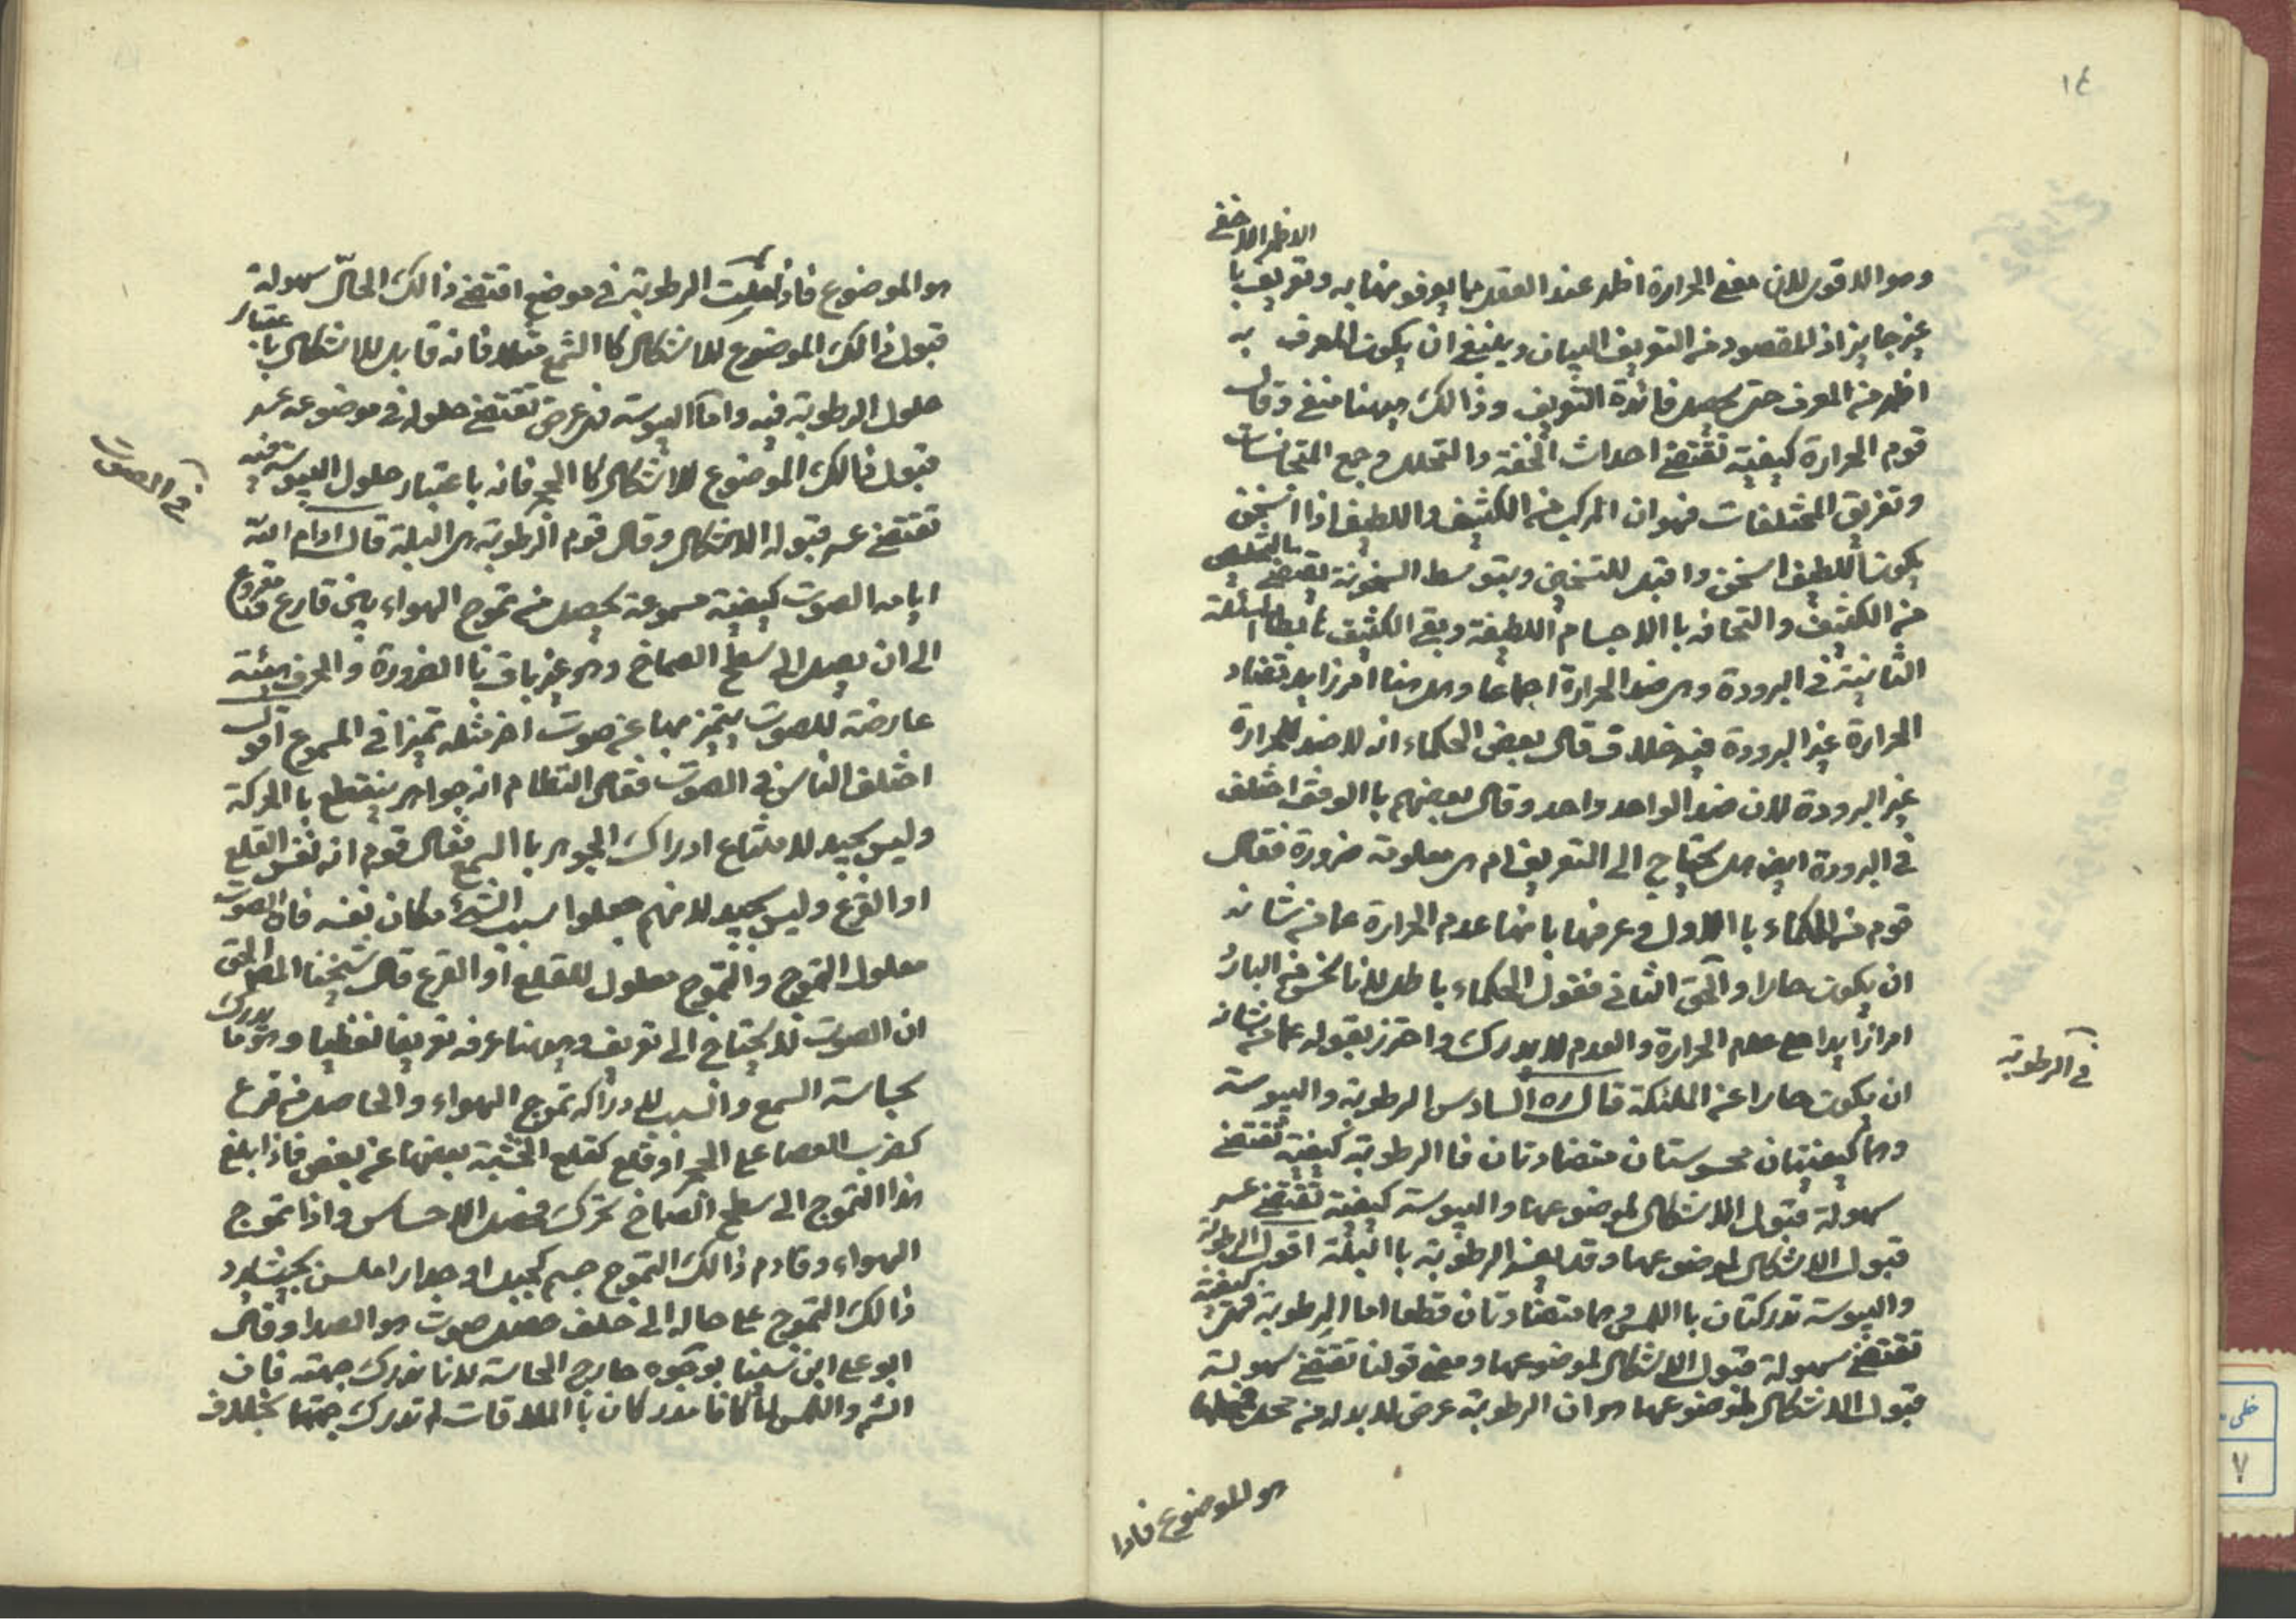 ١٤
الاظهر الاخفى
وهو الاقوى لان معنى الحرارة اظهر عند العقل مما يعرفونها به وتعريف با
غير جايز اذ المقصود من التعريف البيان وينبغى ان يكون المعرف به
اظهر من المعرف حتى يحصل فائدة التعريف وذالك ههنا منفى وقال
قوم الحرارة كيفية تقتضى احداث الخفة والتخلل وجمع المتجانسات
وتفريق المختلفات فهو ان المركب من الكثيف واللطيف اذا تسخن
يكون اللطيف اسخن واقبل للتسخين وبتوسط السخونة يقتضى بالتخلص
من الكثيف والتحاقه با الاجسام اللطيفة وبقى الكثيف المسئلة
الثانية فى البرودة وهى ضد الحرارة اجماعا وهل هنا امر زايد تضاد
الحرارة غير البرودة فيه خلاف قال بعض الحكماء انه لا ضد للحرارة
غير البرودة لان ضد الواحد واحد وقال بعضهم با الوقف اختلف
فى البرودة ايضا هل يحتاج الى التعريف ام هى معلومة ضرورة فقال
قوم من الحكماء با الاول وعرفها بانها عدم الحرارة عما من شانه
ان يكون حارا والحق الثانى فقول الحكماء باطل لانا نحس من البارد
امرا زايدا على عدم الحرارة والعدم لا يدرك واحترز بقوله عما من شانه
ان يكون حارا عن الملئكة قال ره السادس الرطوبة واليبوسة
فى الرطوبة
وهما كيفيتان محسوستان متضادتان فا الرطوبة كيفية تقتضى
سهولة قبول الاشكال لموضوعها واليبوسة كيفية تقتضى عسر
قبول الاشكال لموضوعها وقد الرطوبة با البلة اقول الرطوبة
واليبوسة تدركان با اللمس وهما متضادتان قطعا اما الرطوبة فهى كيفية
تقتضى سهولة قبول الاشكال لموضوعها ومعنى قولنا تقتضى سهولة
قبول الاشكال لموضوعها هو ان الرطوبة عرض لا بد له من محل
هو الموضوع فاذا
هو الموضوع فاذا حلت الرطوبة فى موضع اقتضى ذالك الحال سهولة
قبول ذالك الموضوع للاشكال كا الشمع مثلا فانه قابل للاشكال باعتبار
حلول الرطوبة فيه واما اليبوسة فهى عرض تقتضى حلوله فى موضوعه عسر
قبول ذالك الموضوع للاشكال كا الحجر فانه باعتبار حلول اليبوسة فيه
فى الصوت
تقتضى عسر قبوله الاشكال وقال قوم الرطوبة هى البلة قال ادام الله
ايامه الصوت كيفية مسموعة يحصل من تموج الهواء بين قارع ومقروع
الى ان يصل الى سطح الصماخ وهو غير باق با الضرورة والحرف هيئة
عارضة للصوت يتميز بها عن صوت اخر مثله تميزا فى المسموع اقول
اختلف الناس فى الصوت فقال النظام انه جواهر ينقطع با الحركة
وليس بجيد لامتناع ادراك الجوهر با السمع فقال قوم انه نفس القلع
او القرع وليس بجيد لانهم جعلوا سبب الشئ مكان نفسه فان الصوت
معلول التموج والتموج معلول للقلع او القرع قال شيخنا المص الحق
ان الصوت لا يحتاج الى تعريف وههنا عرفه تعريفا لفظيا وهو ما يدرك
بحاسة السمع والسبب لادراكه تموج الهواء والحاصل من قرع
كضرب العصا على الحجر او قلع كقلع الخشبة بعضها عن بعض فاذا بلغ
هذا التموج الى سطح الصماخ تحرك فحصل الاحساس واذا تموج
الهواء وقاوم ذالك التموج جسم كجبل او جدار املس بحيث يرد
ذالك التموج على حاله الى خلف حصل صوت هو الصدا وقال
ابو على ابن سينا بوجوه خارج الحاسة لانا ندرك جهته فان
الشم واللمس لما كانا يدركان با الملاقات لم تدرك جهتها بخلاف
خطى
٧